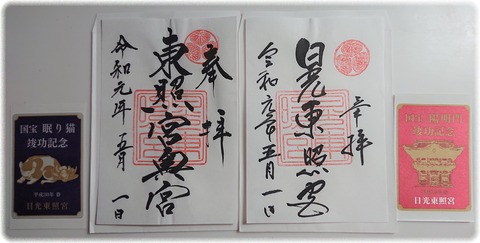 国宝 眠り猫
竣功記念
平成30年 春
日光東照宮
奉拝
東照宮奥宮
令和元年 五月 一日
奉拝
日光東照宮
令和元年五月一日
国宝 陽明門
竣功記念
日光東照宮